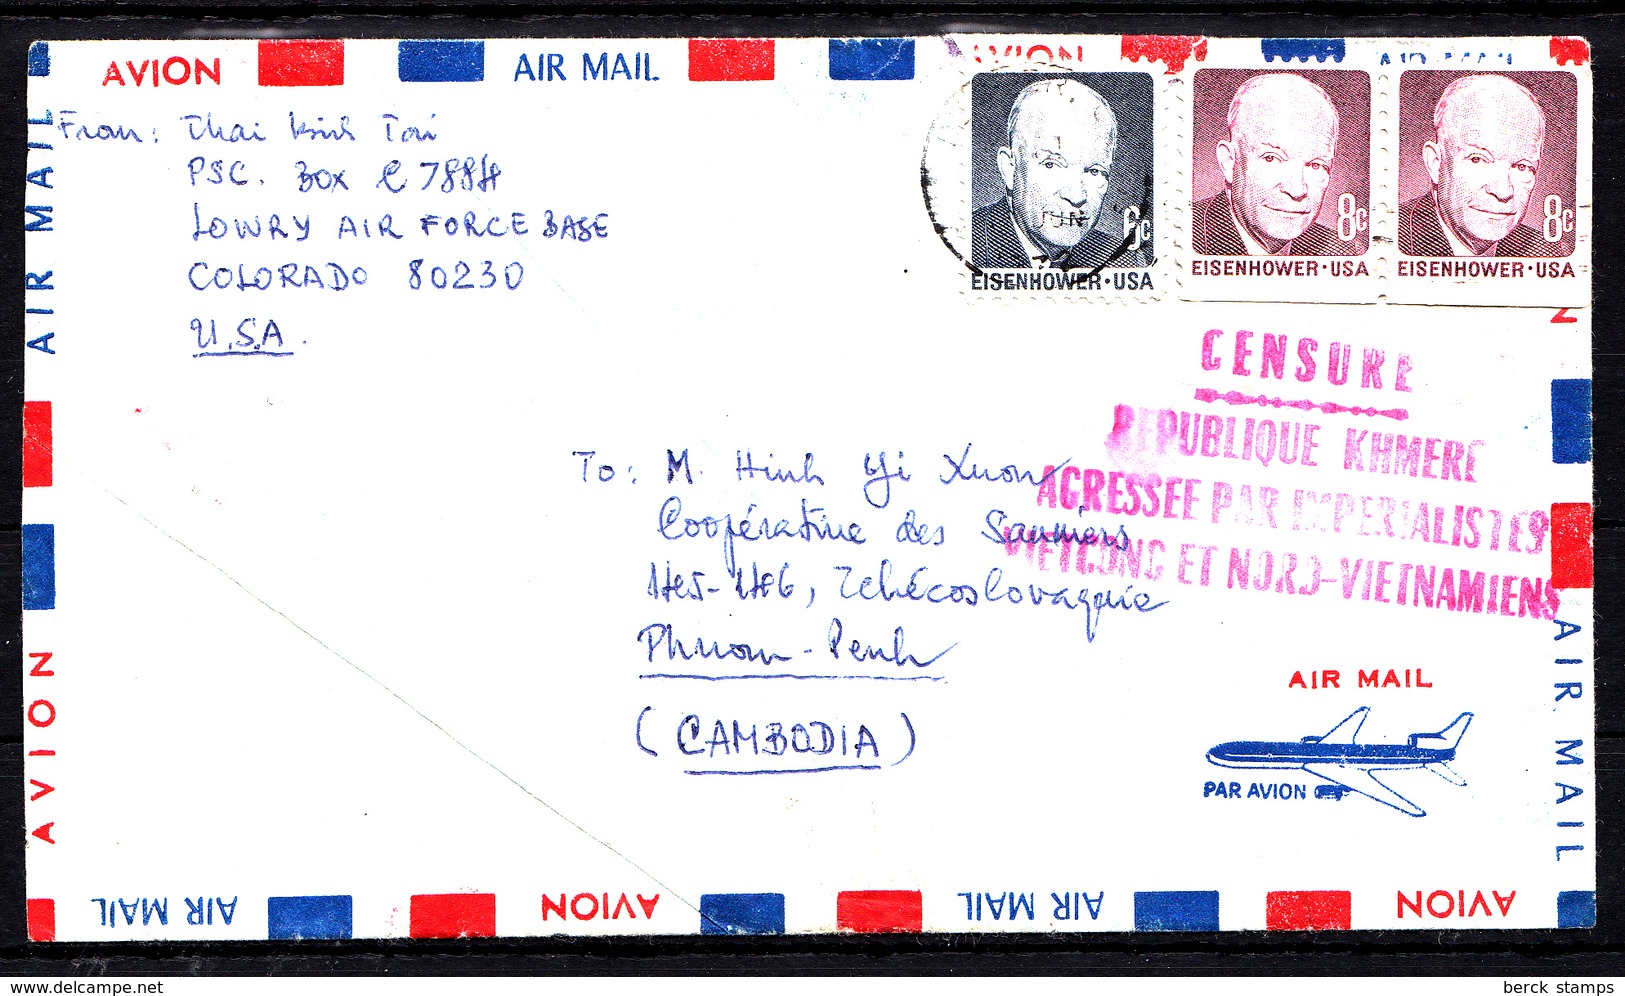 AVION
AIR MAIL
AVION
AIR MAIL
From: Thai Kinh Tai
PSC. Box C 7884
LOWRY AIR FORCE BASE
COLORADO 80230
U.S.A.
JUN
6c
EISENHOWER·USA
8c
EISENHOWER·USA
8c
EISENHOWER·USA
CENSURE
REPUBLIQUE KHMERE
AGRESSEE PAR IMPERIALISTES
VIETCONG ET NORD-VIETNAMIENS
To: M. Hinh Yi Xuon
Coopérative des Sauniers
1465-1466, Tchécoslovaquie
Phnom-Penh
(CAMBODIA)
AIR MAIL
PAR AVION
AIR MAIL
AVION
AIR MAIL
AIR MAIL
AVION
AIR MAIL
AVION
berck stamps
www.delcampe.net